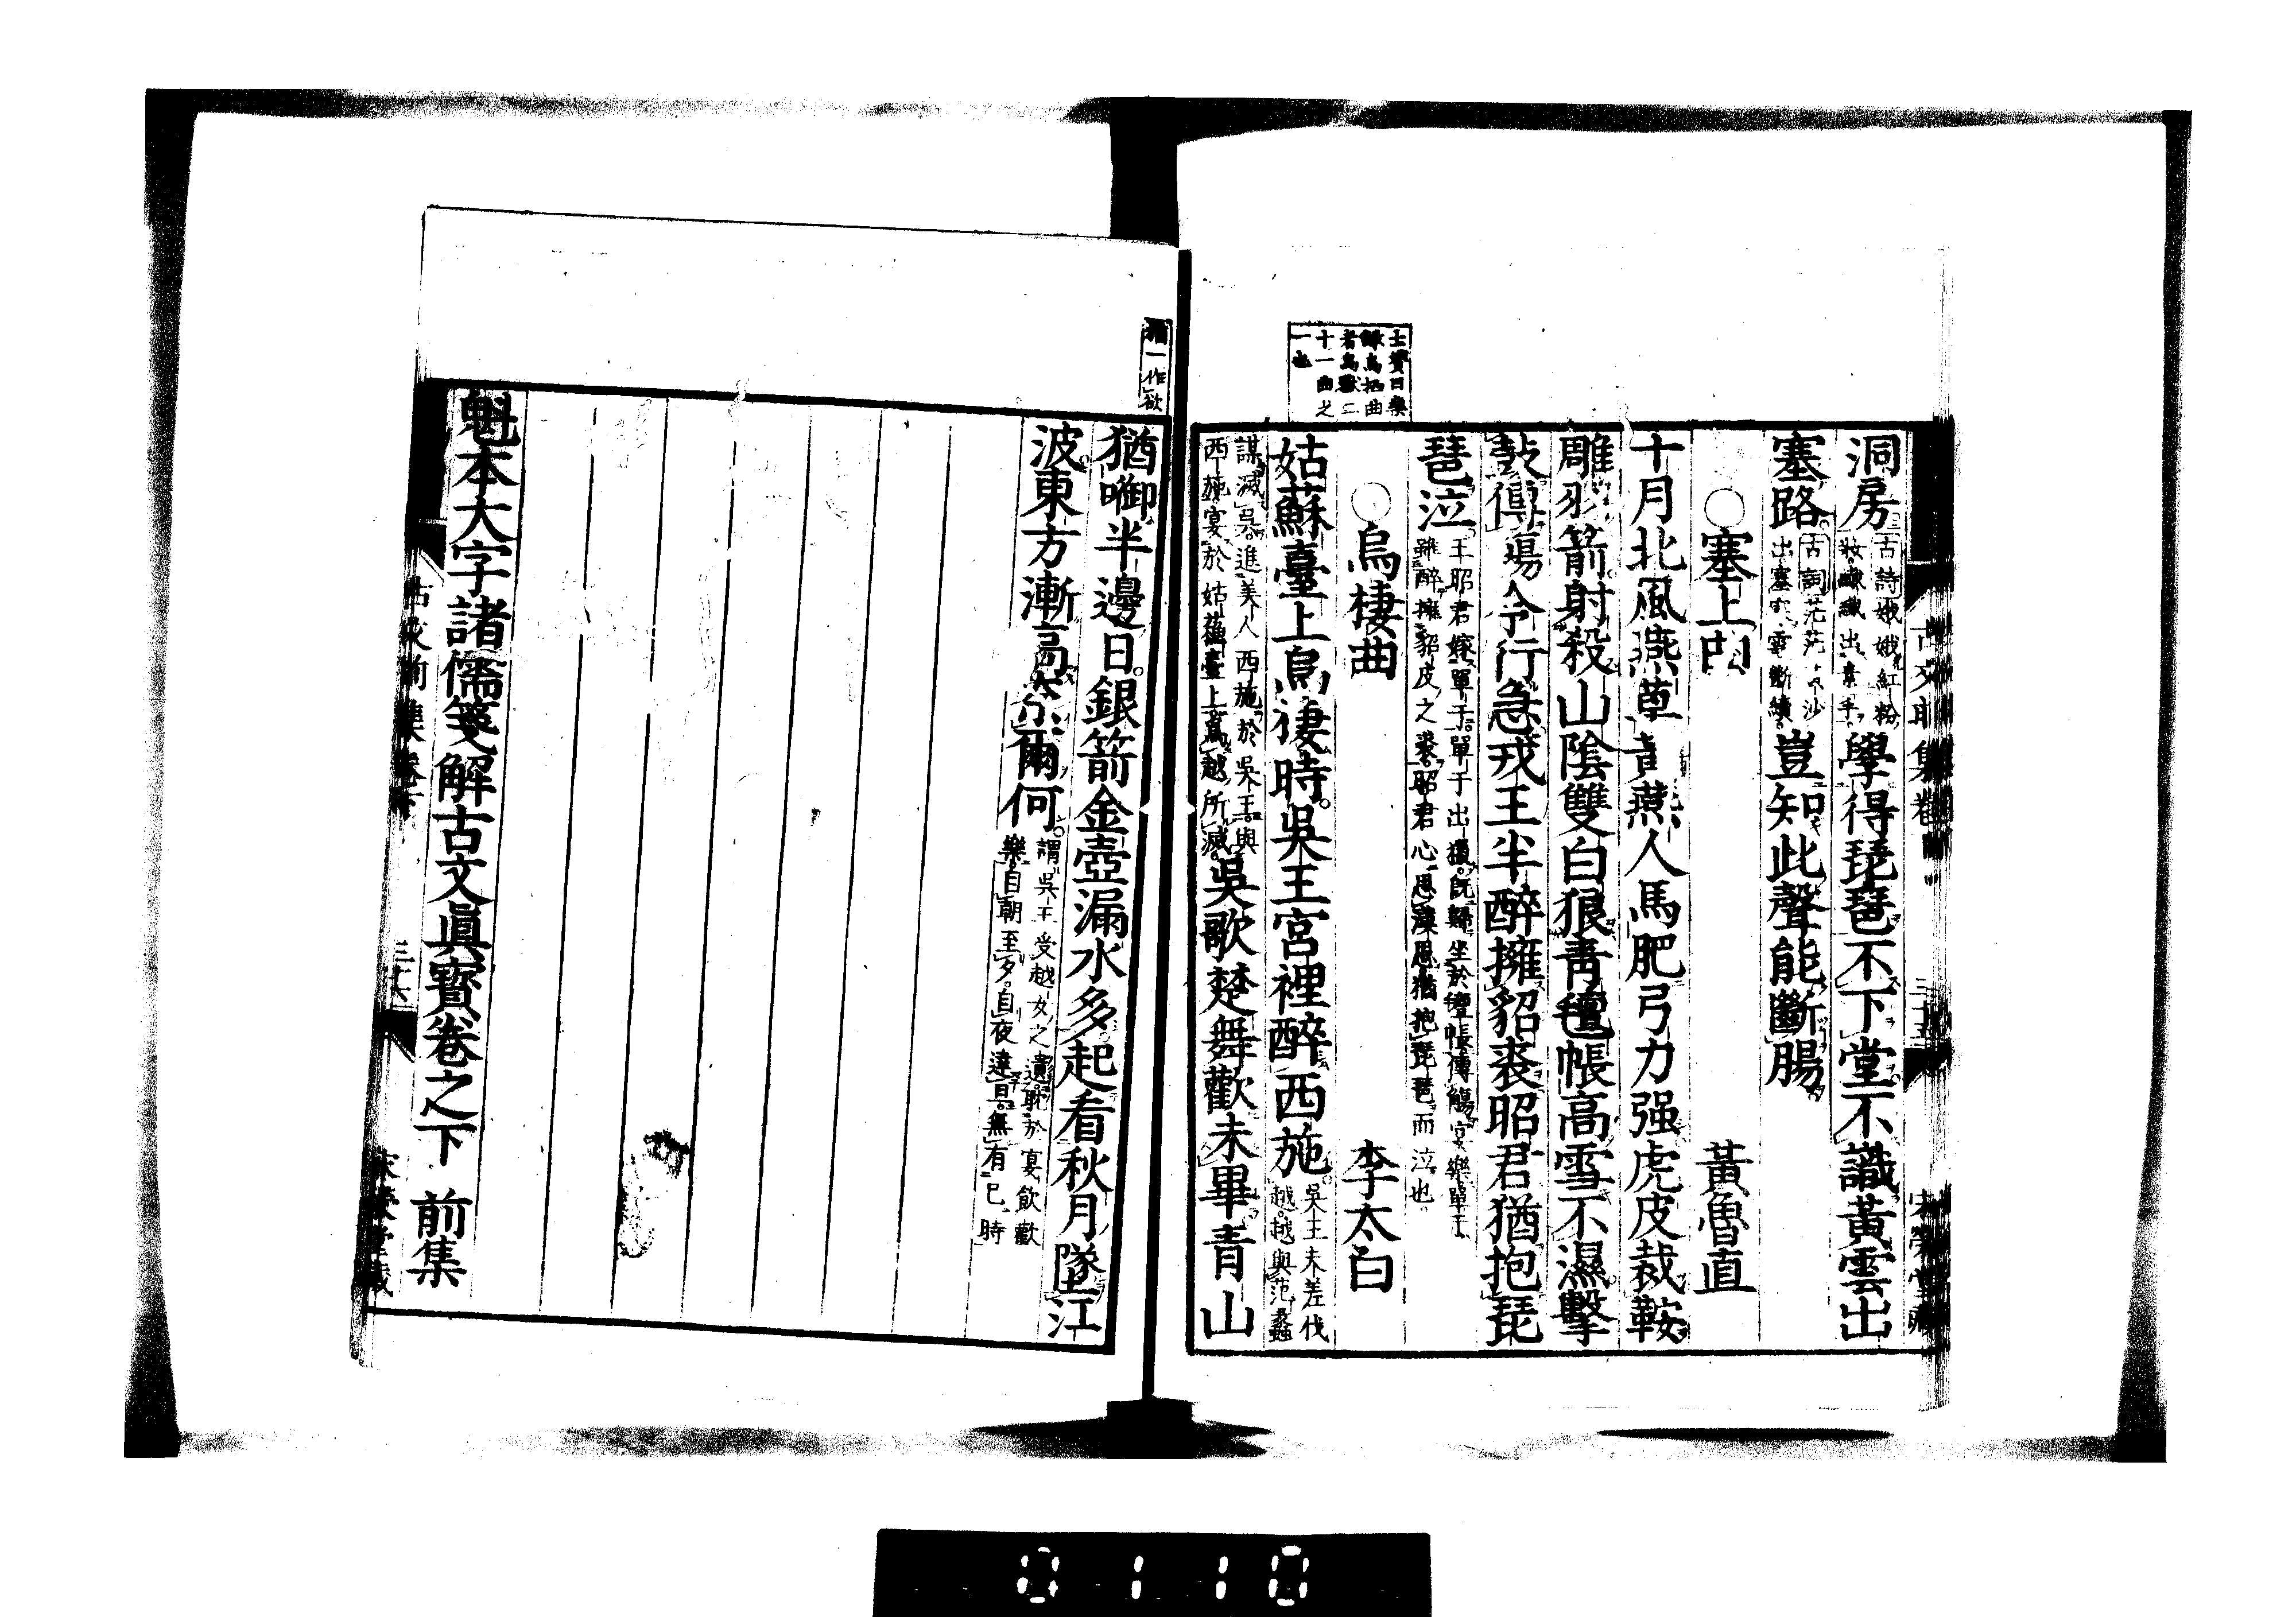 洞房古詩娥娥紅粉妝纖纖出素手學得琵琶不下堂不識黃雲出
塞路古詞茫茫沙出塞雲斷續豈知此聲能斷腸
○塞上曲 黃魯直
十月北風燕草黃燕人馬肥弓力强虎皮裁鞍
雕羽箭射殺山陰雙白狼青氊帳高雪不濕擊
鼓傳觴令行急戎王半醉擁貂裘昭君猶抱琵
琶泣王昭君嫁單于單于出獵既歸坐於氊帳傳觴宴樂單于雖醉擁貂皮之裘昭君心思漢恩猶抱琵琶而泣也
○烏棲曲 李太白
士贇曰樂
錄烏栖曲
者鳥獸二
十一曲之
一也
姑蘇臺上烏棲時吳王宮裡醉西施吳王夫差伐越越與范蠡
謀滅吳進美人西施於吳王與西施宴於姑蘇臺上爲越所滅吳歌楚舞歡未畢青山
猶一作欲
猶啣半邊日銀箭金壺漏水多起看秋月墜江
波東方漸高奈爾何謂吳王受越女之遺耽於宴飲歡樂自朝至夕自夜達旦無有已時
魁本大字諸儒箋解古文眞寳卷之下 前集
古文前集卷下 三十六
古文前集卷 三十五
0110